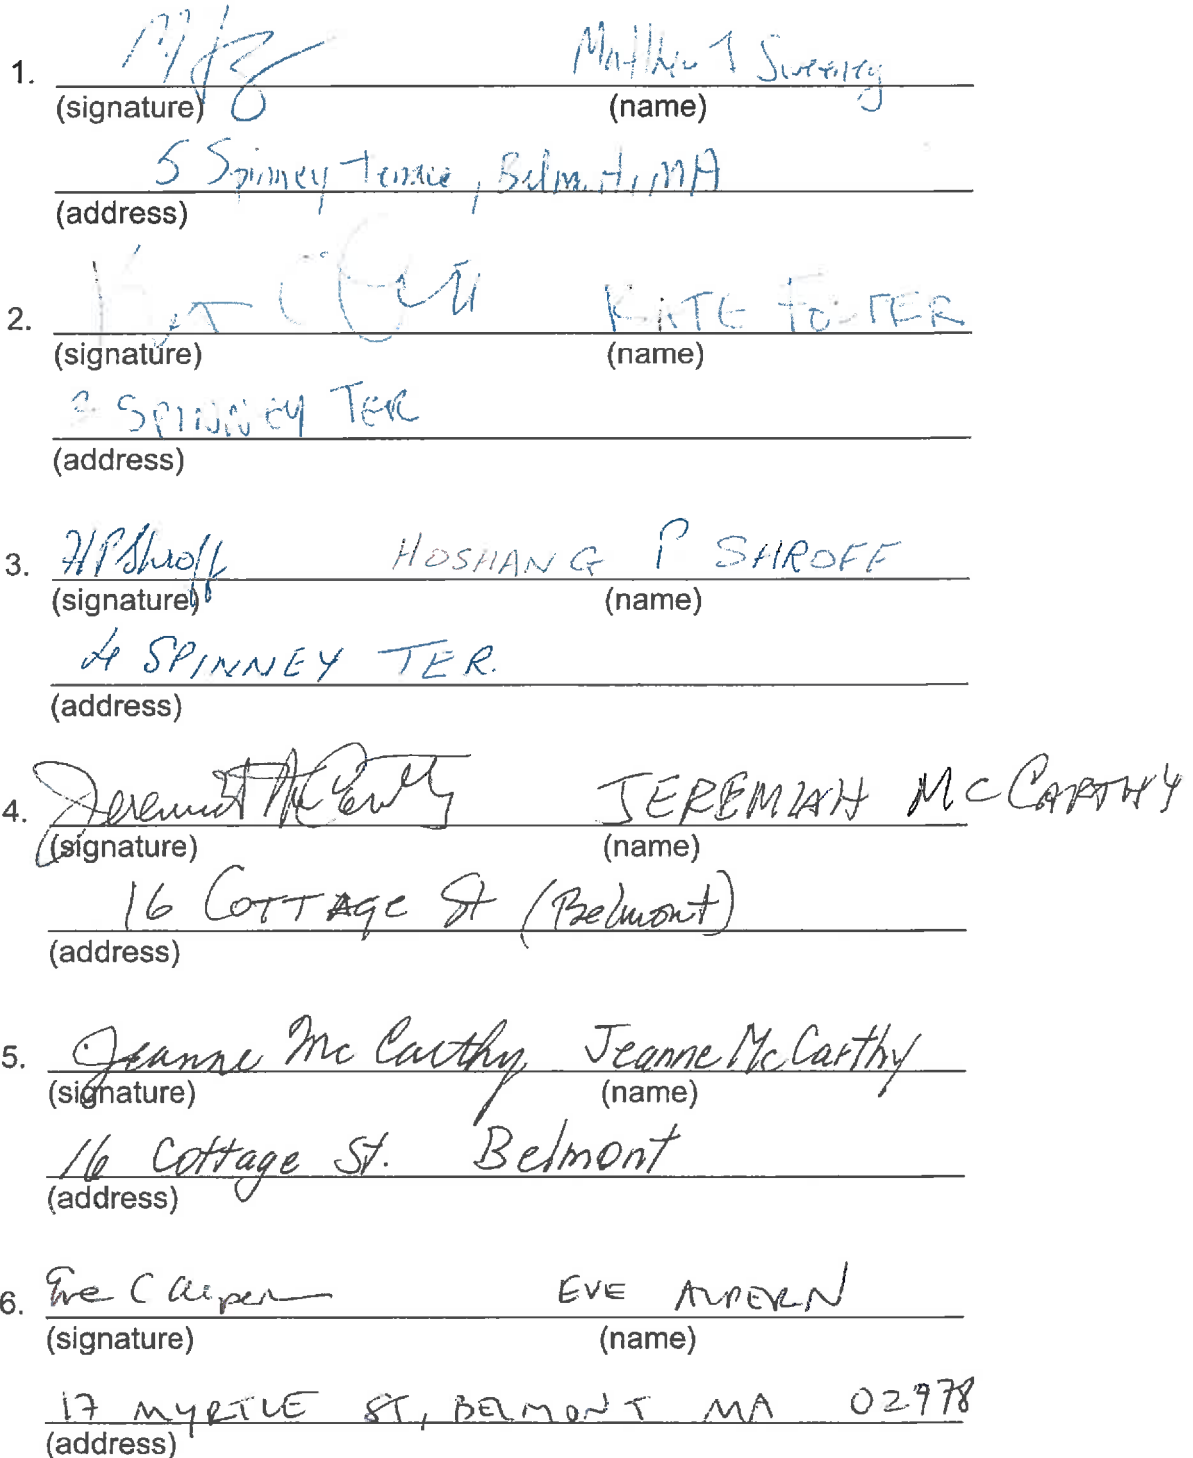 1. Matthew T Sweeney
(signature) (name)
5 Spinney Terrace, Belmont, MA
(address)
2. KATE FOSTER
(signature) (name)
SPINNEY TER
(address)
3. HPShroff HOSHANG P SHROFF
(signature) (name)
4 SPINNEY TER.
(address)
4. Jeremiah McCarthy JEREMIAH McCARTHY
(signature) (name)
16 COTTAge St (Belmont)
(address)
5. Jeanne McCarthy Jeanne McCarthy
(signature) (name)
16 Cottage St. Belmont
(address)
6. Eve C Alpern EVE ALPERN
(signature) (name)
17 MYRTLE ST, BELMONT MA 02978
(address)